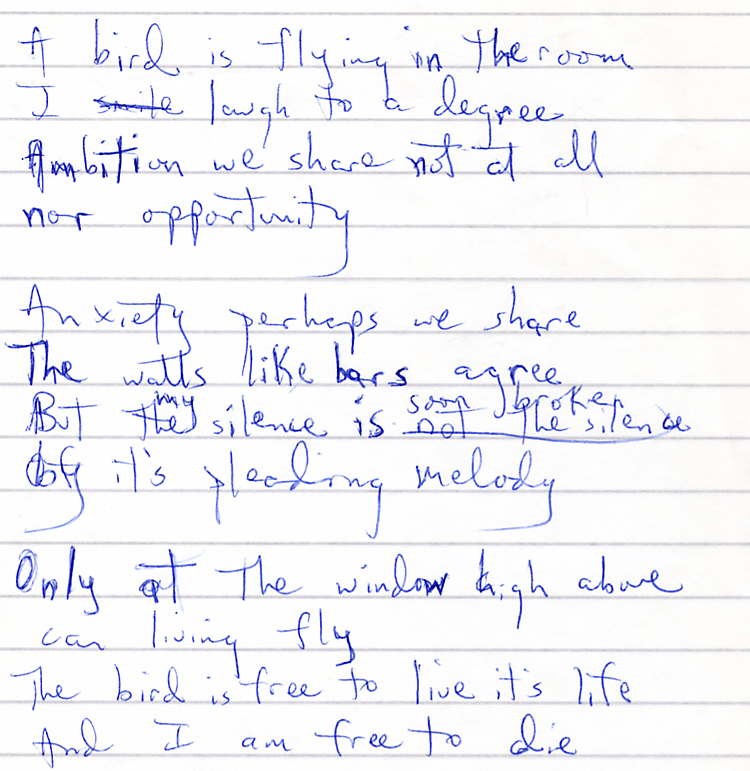 A bird is flying in the room
I smile laugh to a degree
Ambition we share not at all
nor opportunity
Anxiety perhaps we share
The walls like bars agree
But the my silence is not the silence soon broken
by it's pleading melody
Only at the window high above
can living fly
The bird is free to live it's life
And I am free to die